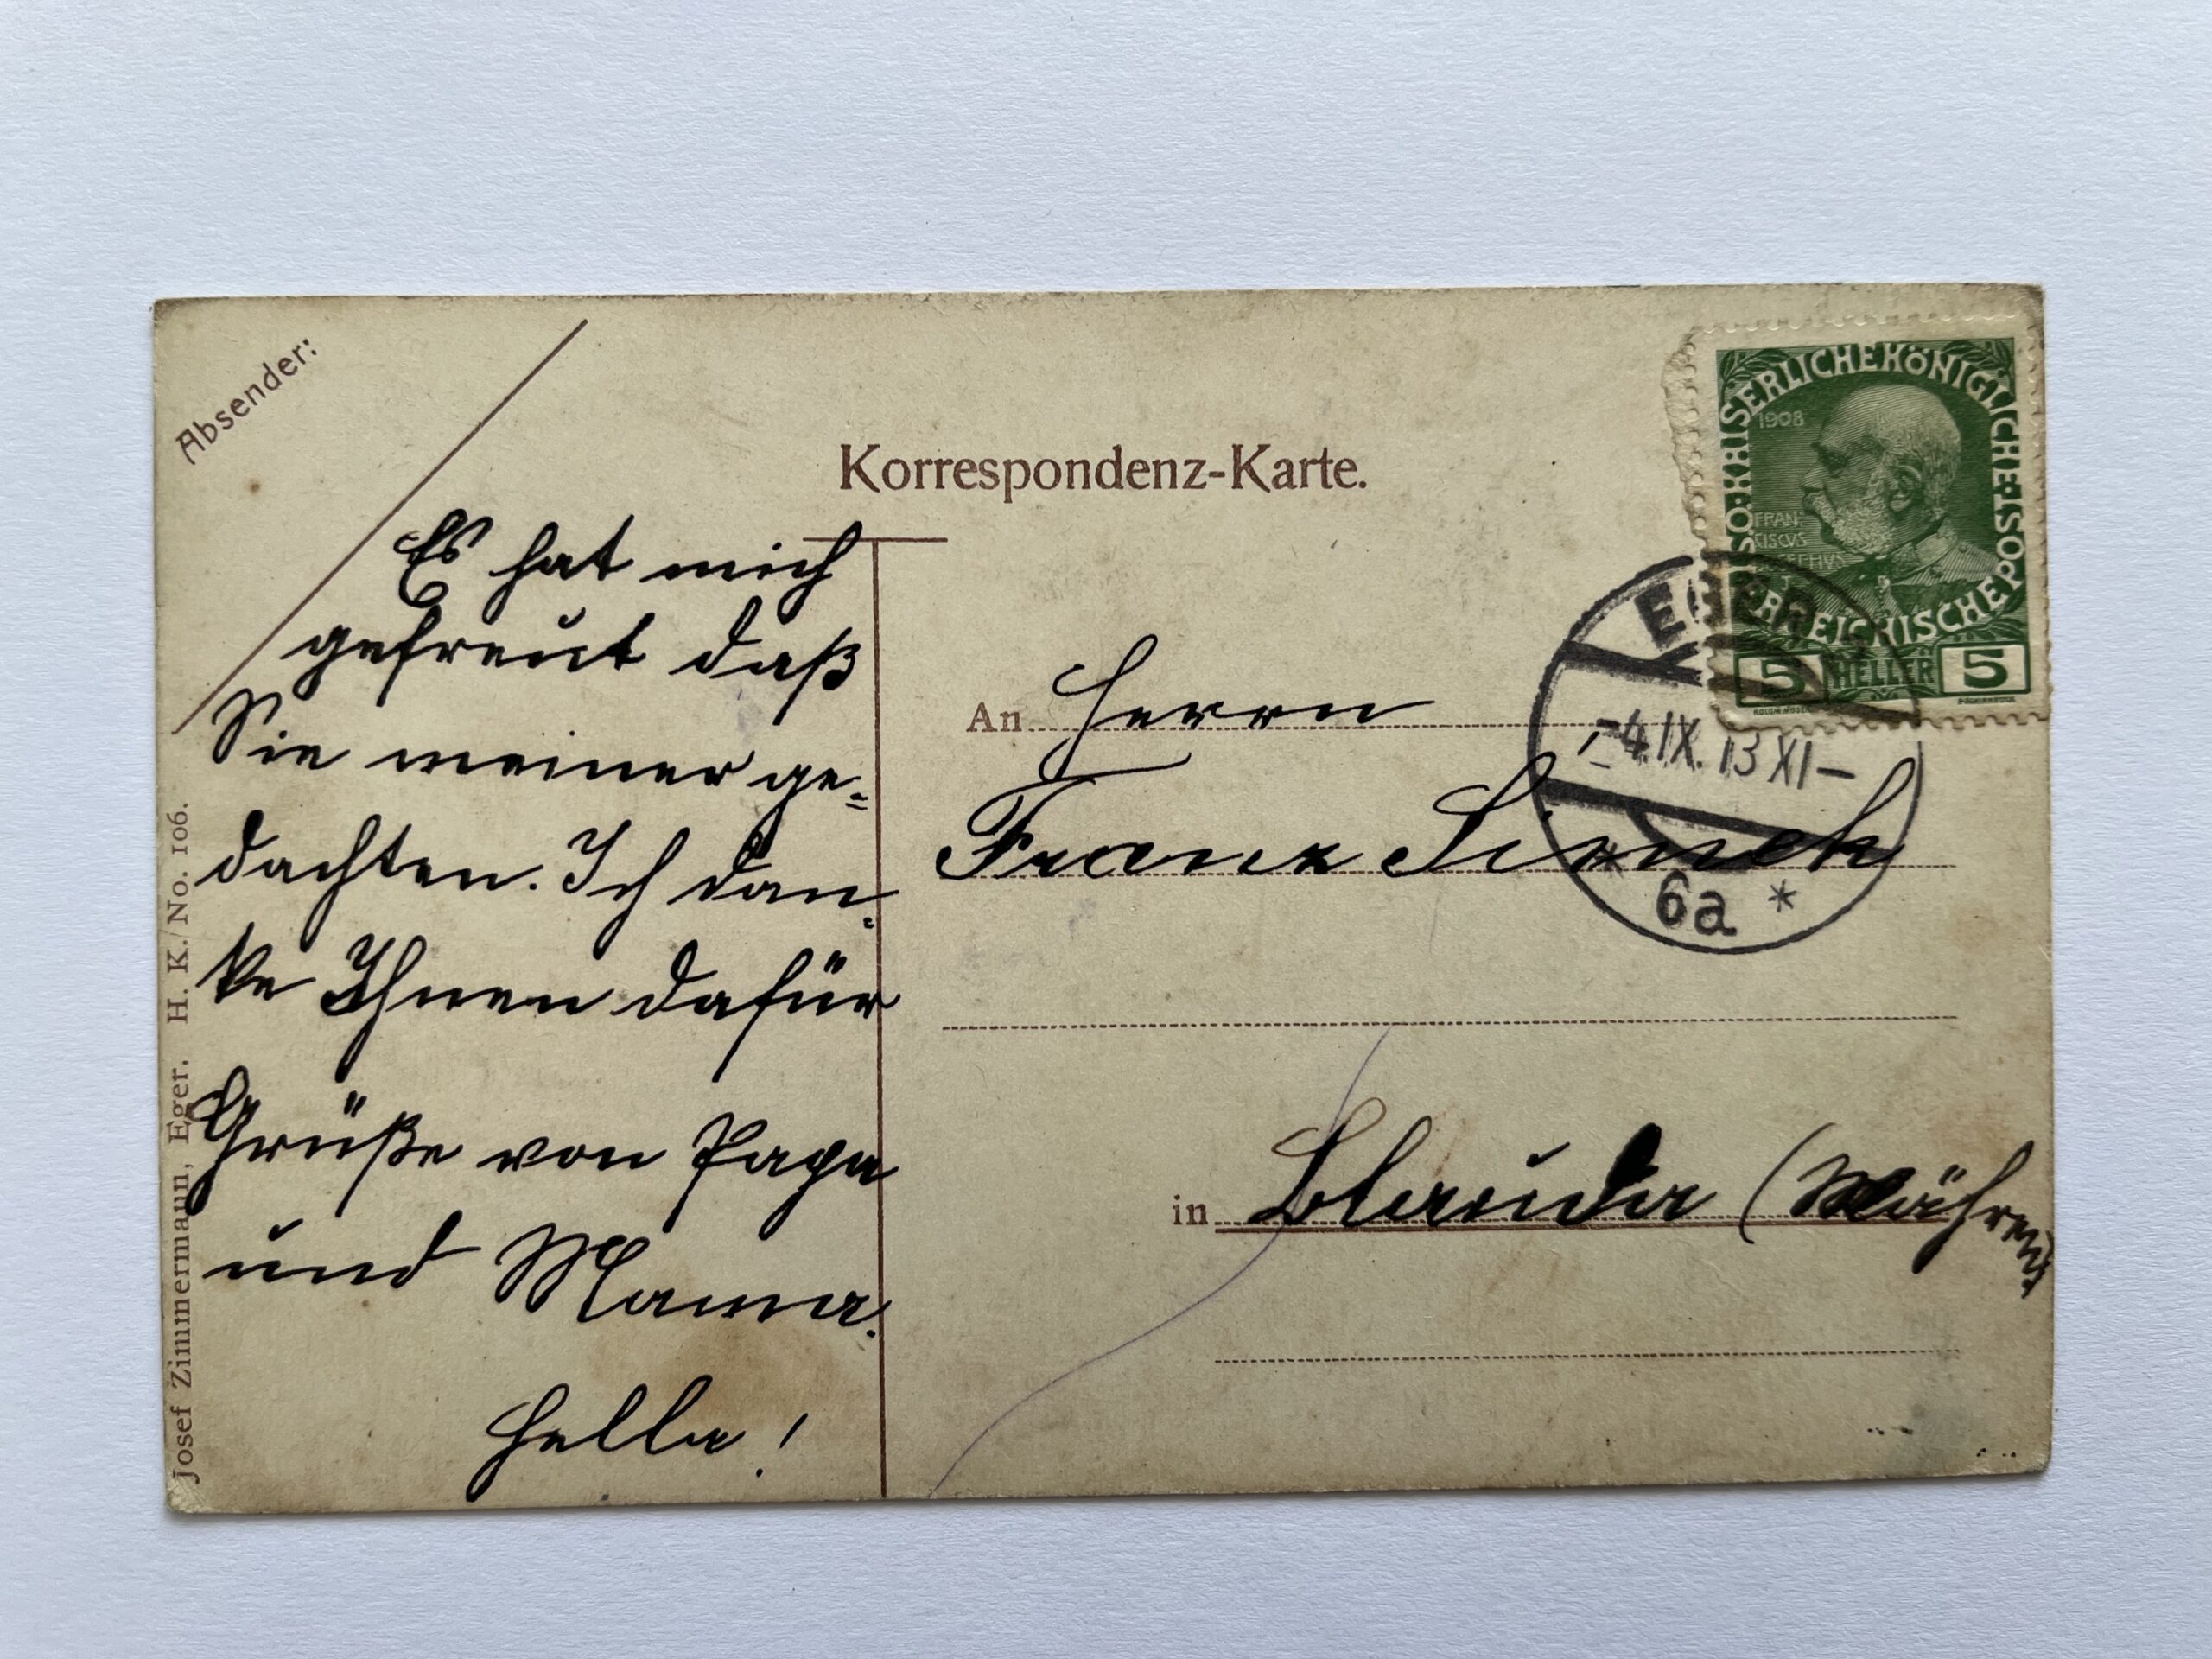 Absender:
Korrespondenz-Karte.
Es hat mich
gefreut daß
Sie meiner ge=
dachten. Ich dan=
ke Ihnen dafür
Grüße von Papa
und Mama.
Hella!
Josef Zimmermann, Eger. H. K./No. 106.
KAISERLICHE KÖNIGLICHE
ÖSTERREICHISCHE POST
1908
FRAN
CISCVS
5 HELLER 5
EGER
-4.IX.13 XI-
* 6a *
An Herrn
Franz Simek
in Blauda (Mähren)